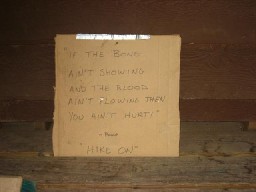 "IF THE BONE
AIN'T SHOWING
AND THE BLOOD
AIN'T FLOWING THEN
YOU AIN'T HURT!"
"HIKE ON"